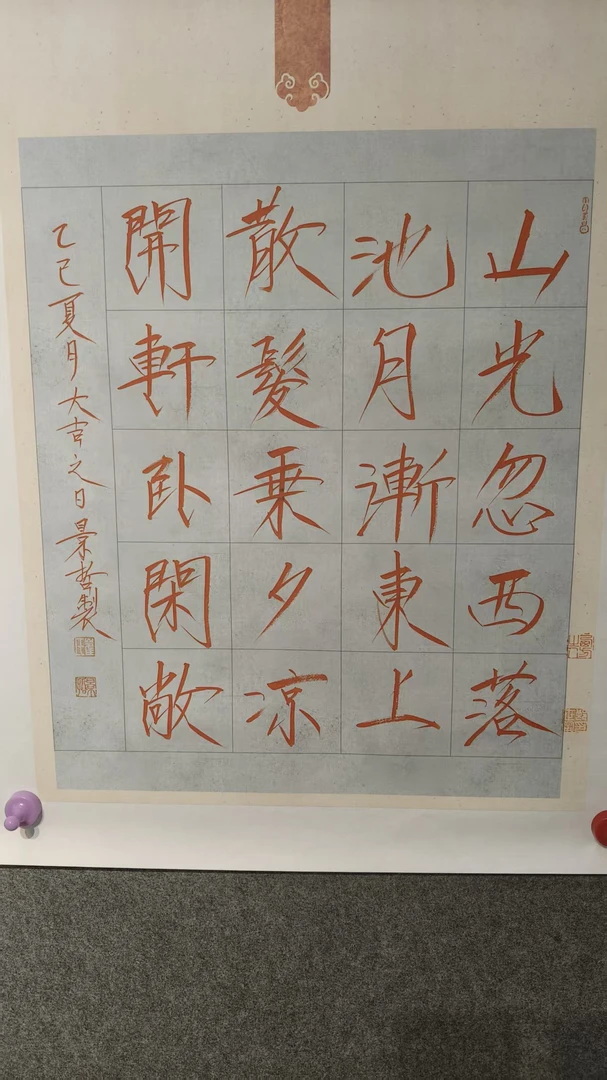 山光忽西落
池月漸東上
散髮乗夕凉
開軒卧閑敞
乙巳夏月大吉之日景哲製